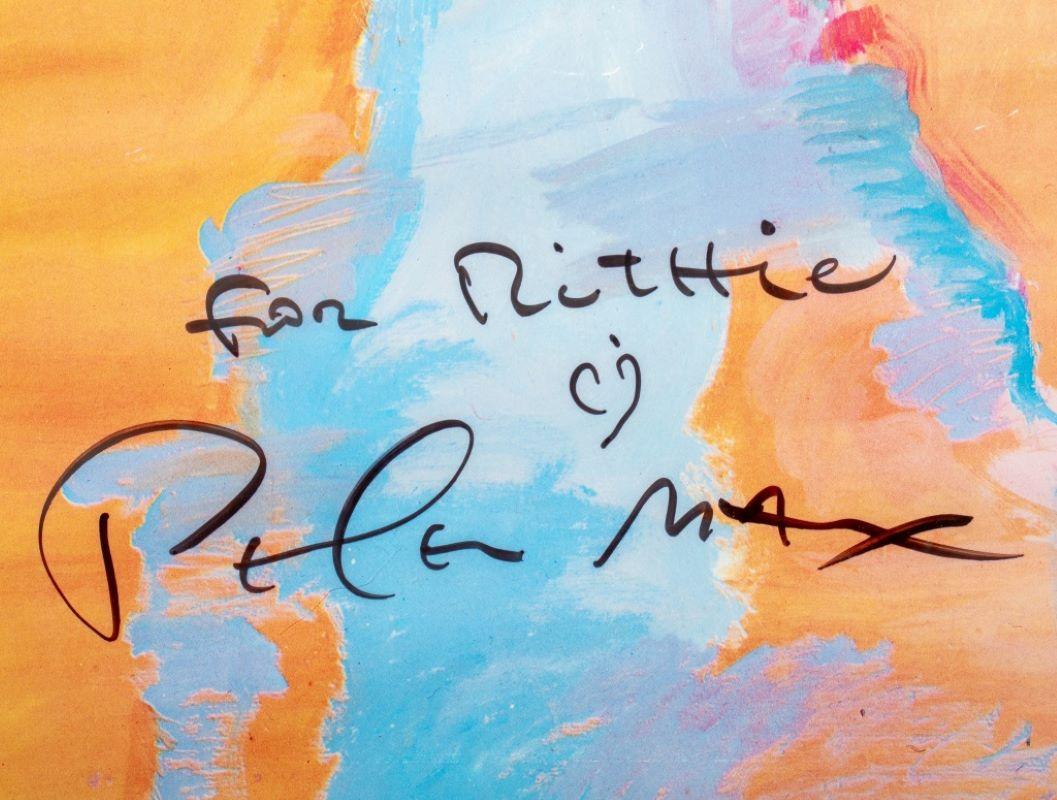 For RitHie
♡
Peter MAX